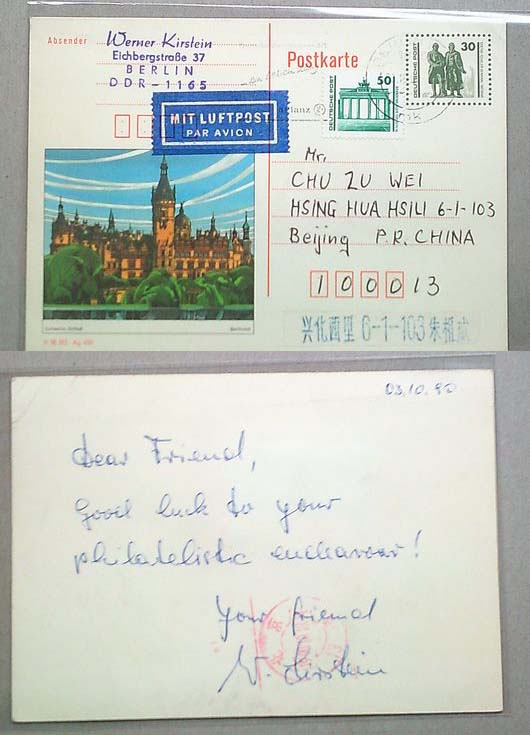 Absender
Werner Kirstein
Eichbergstraße 37
BERLIN
DDR-1165
Postkarte
DEUTSCHE POST
50
DEUTSCHE POST
30
MIT LUFTPOST
PAR AVION
Mr.
CHU ZU WEI
HSING HUA HSILI 6-1-103
Beijing P.R. CHINA
100013
兴化西里 6-1-103 朱祖威
03.10.90
Dear Friend,
Good luck to your
philatelistic endeavour!
Your friend
W. Kirstein